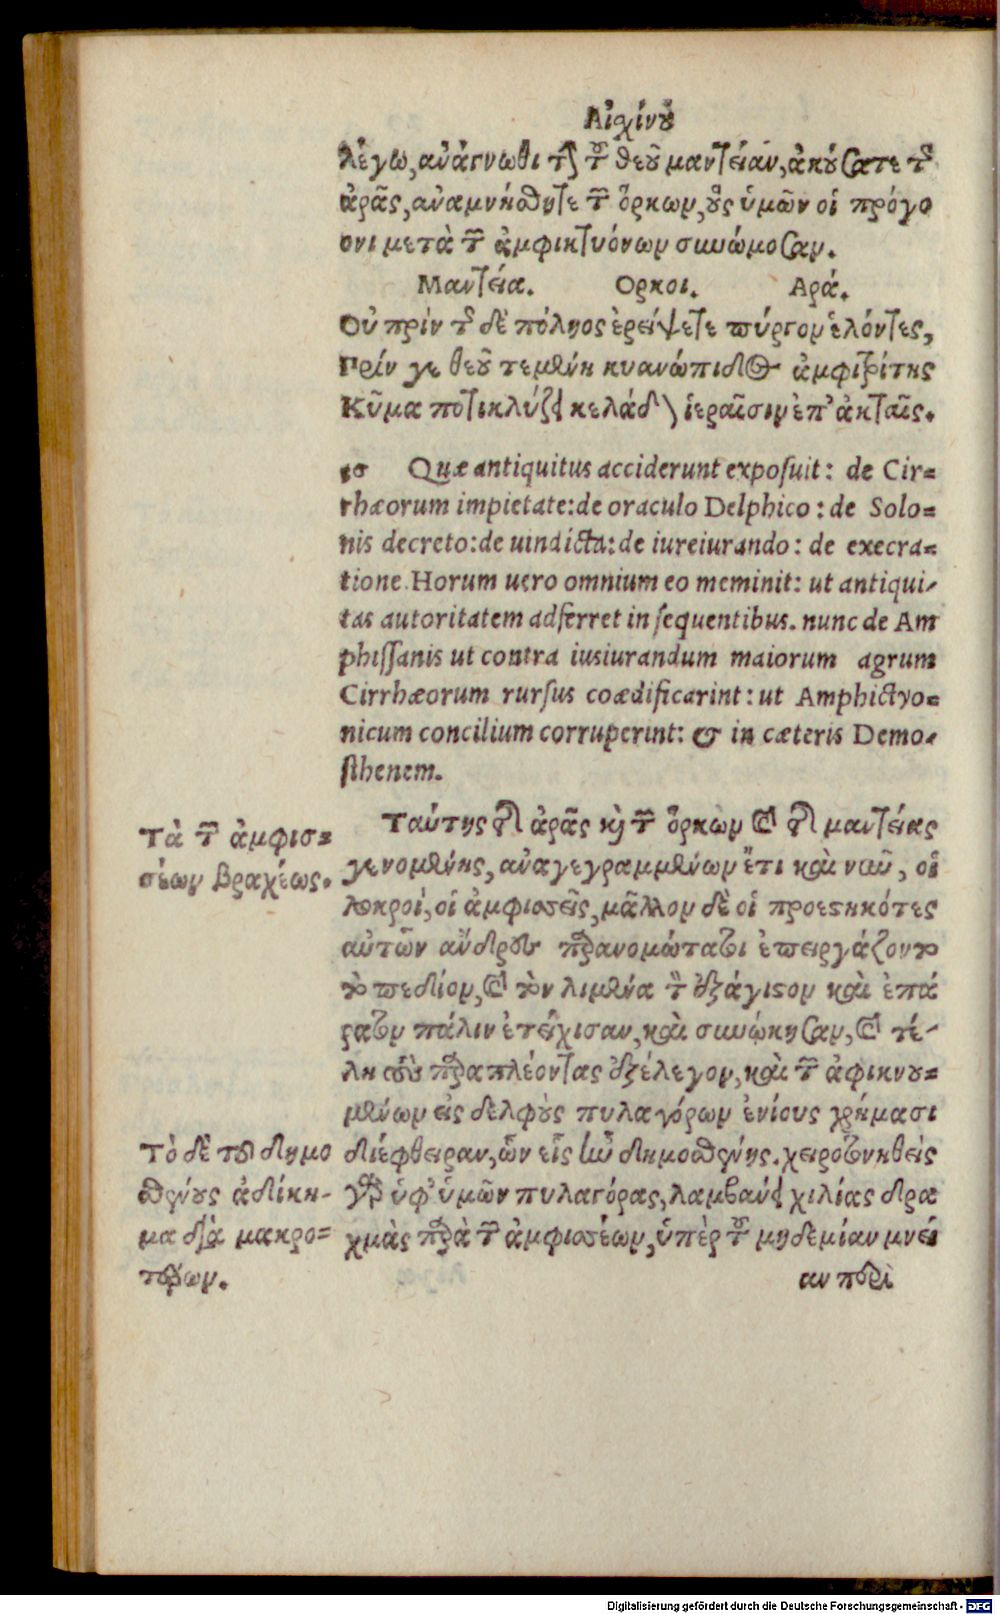 Αἰχίνου
λέγω, ἀνάγνωθι τὴν τοῦ θεοῦ μαντείαν, ἀκούσατε τῆς
ἀρᾶς, ἀναμνήσθητε τῶν ὅρκων, οὓς ὑμῶν οἱ πρόγο
ονι μετὰ τῶν ἀμφικτυόνων συνώμοσαν.
Μαντεία. Ορκοι. Αρά.
Οὐ πρὶν τῆς δὲ πόληος ἐρείψετε πύργον ἑλόντες,
Πρίν γε θεοῦ τεμένη κυανώπιδος ἀμφιτρίτης
Κῦμα ποτικλύζῃ κελάδον ἱεραῖσιν ἐπ' ἀκταῖς.
Quæ antiquitus acciderunt exposuit: de Cir=
rhæorum impietate: de oraculo Delphico: de Solo=
nis decreto: de uindicta: de iureiurando: de execra=
tione. Horum uero omnium eo meminit: ut antiqui-
tas autoritatem adferret in sequentibus. nunc de Am
phissanis ut contra iusiurandum maiorum agrum
Cirrhæorum rursus coædificarint: ut Amphictyo=
nicum concilium corruperint: & in cæteris Demo-
sthenem.
Τὰ τῶν ἀμφισ=
σέων βραχέως.
Ταύτης τῆς ἀρᾶς καὶ τῶν ὅρκων καὶ τῆς μαντείας
γενομένης, ἀναγεγραμμένων ἔτι καὶ νῦν, οἱ
λοκροὶ, οἱ ἀμφισσεῖς, μᾶλλον δὲ οἱ προεστηκότες
αὐτῶν ἄνδρες παρανομώτατοι ἐπειργάζοντο
τὸ πεδίον, καὶ τὸν λιμένα τὸν ἐξάγιστον καὶ ἐπά
ρατον πάλιν ἐτείχισαν, καὶ συνῴκησαν, καὶ τέ-
λη τοὺς παραπλέοντας ἐξέλεγον, καὶ τῶν ἀφικνου=
μένων εἰς δελφοὺς πυλαγόρων ἐνίους χρήμασι
Τὸ δὲ τοῦ δημο
σθένους ἀδίκη-
μα διὰ μακρο=
τέρων.
διέφθειραν, ὧν εἷς ἦν δημοσθένης. χειροτονηθεὶς
γὰρ ὑφ' ὑμῶν πυλαγόρας, λαμβάνει χιλίας δρα
χμὰς παρὰ τῶν ἀμφισσέων, ὑπὲρ τοῦ μηδεμίαν μνεί
αν περὶ
Digitalisierung gefördert durch die Deutsche Forschungsgemeinschaft - DFG